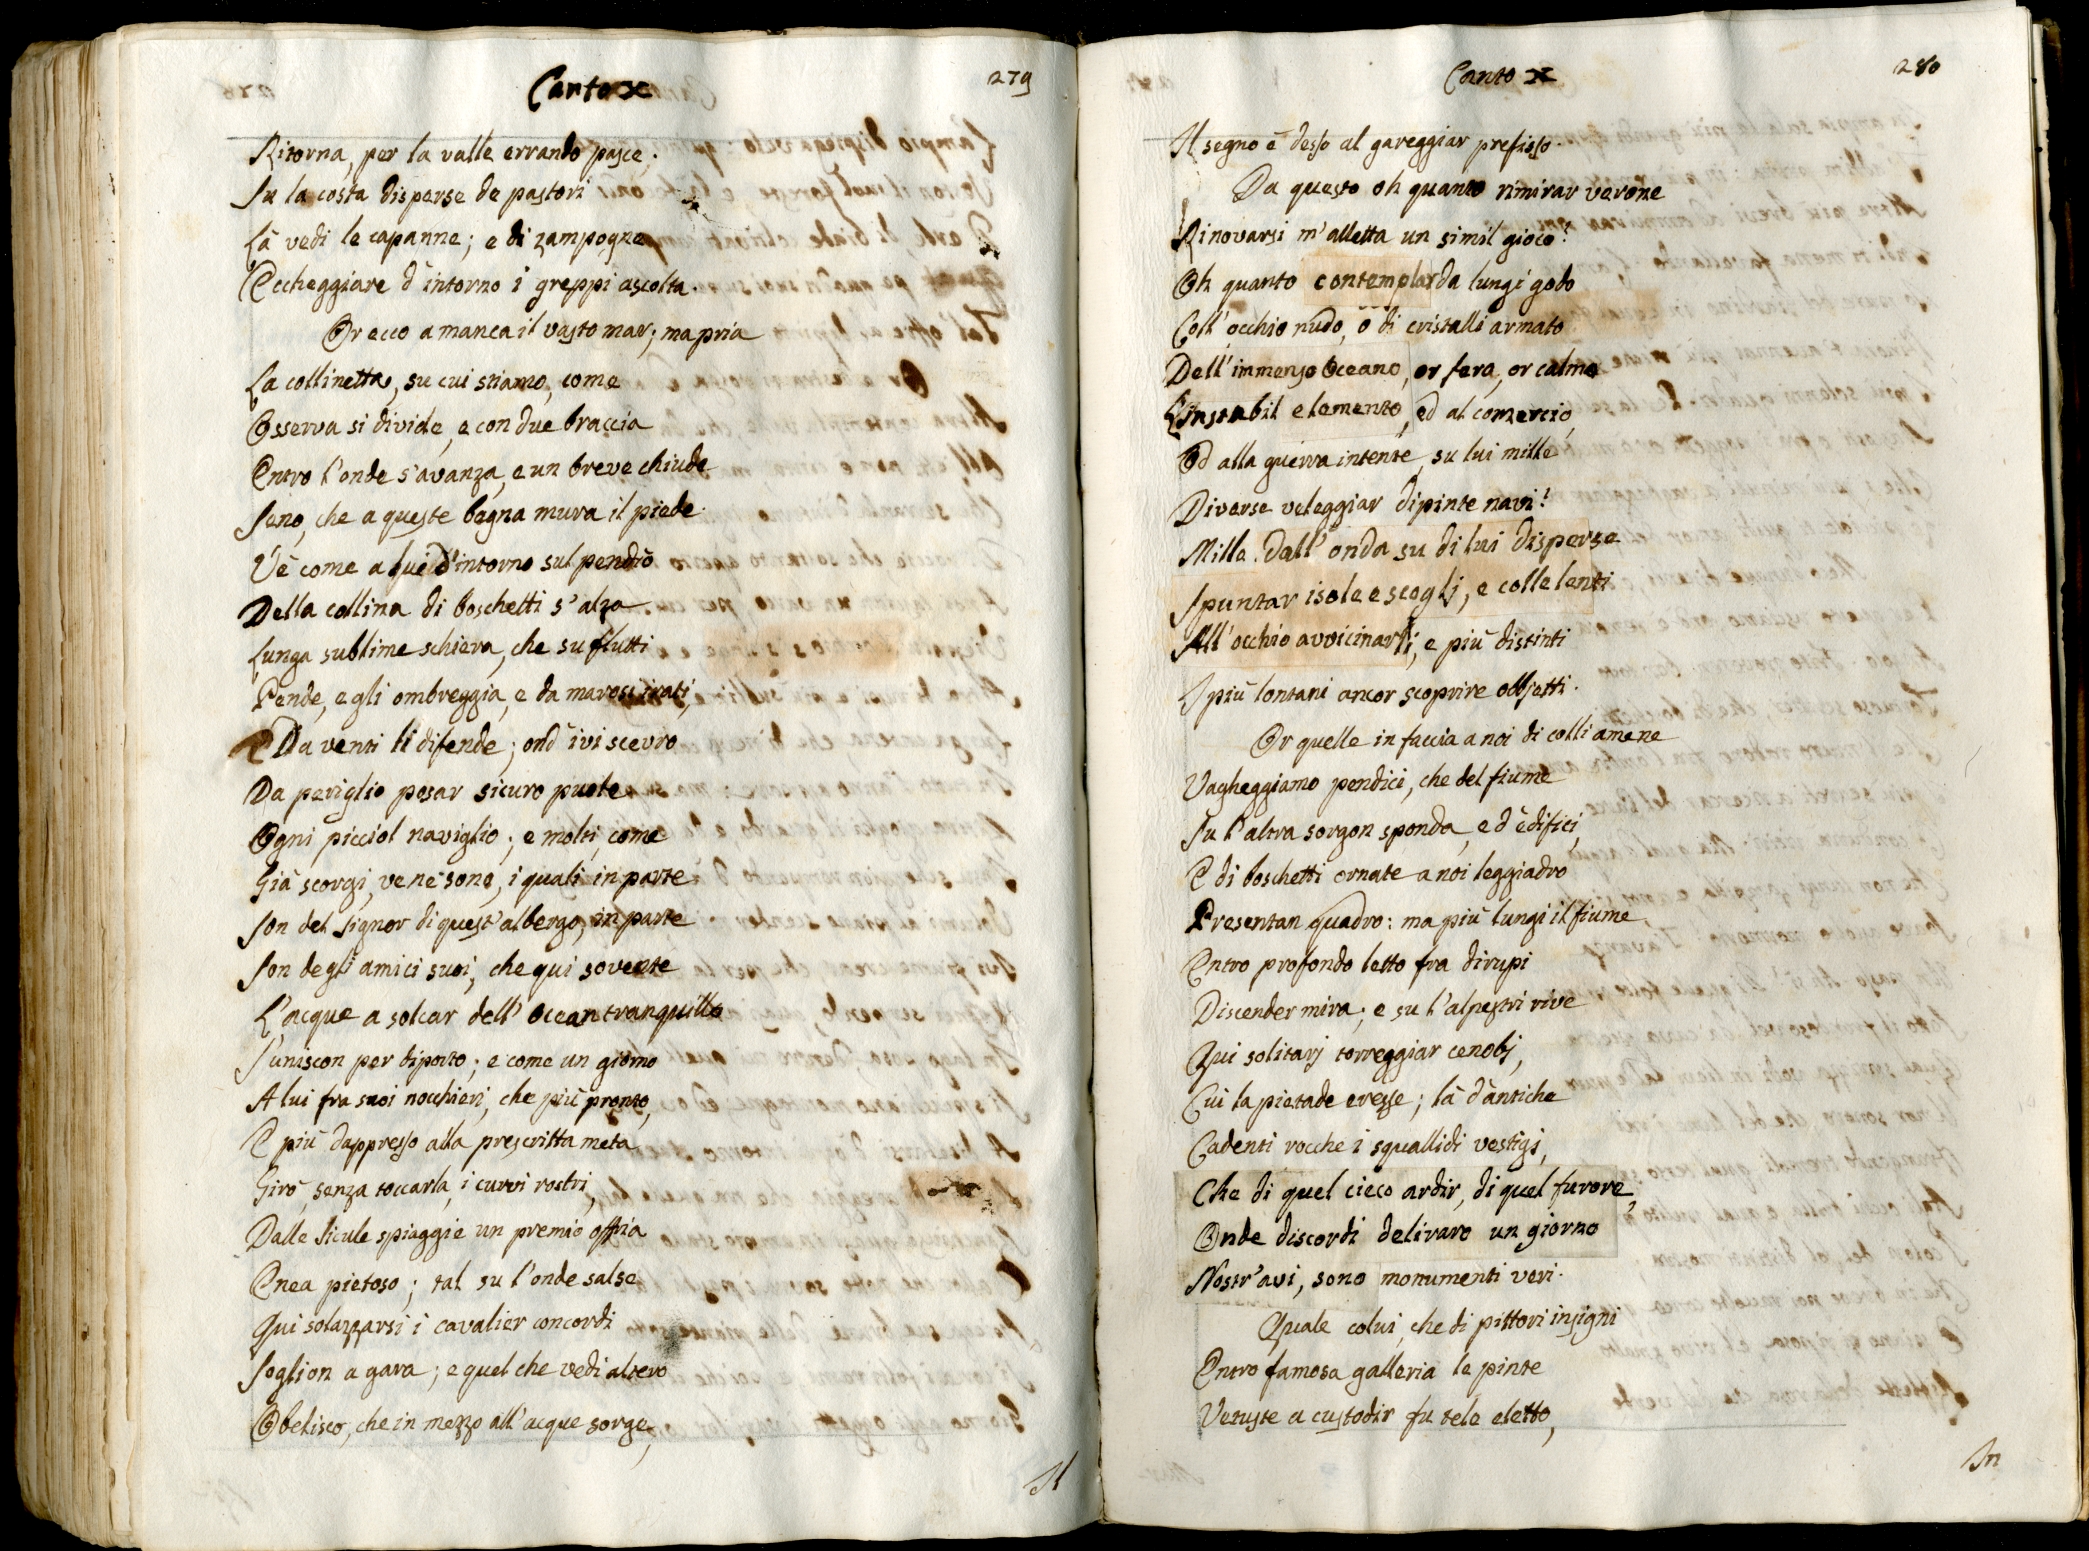 Canto X
279
Ritorna, per la valle errando pasce.
Su la costa disperse de pastori
Là vedi le capanne; e di zampogne
Eccheggiare d'intorno i greppi ascolta.
Or ecco a manca il vasto mar; ma pria
La collinetta, su cui stiamo, come
Osserva si divide, e con due braccia
Entro l'onde s'avanza, e un breve chiude
Seno, che a queste bagna mura il piede.
Vè come a lui d'intorno sul pendio
Della collina di boschetti s'alza
Lunga sublime schiera, che su flutti
Pende, e gli ombreggia, e da marosi irati,
E Da venti li difende; ond'ivi scevro
Da periglio posar sicuro puote
Ogni picciol naviglio; e molti, come
Già scorgi, ve ne sono, i quali in parte
Son del signor di quest'albergo, in parte
Son degli amici suoi, che qui sovente
L'acque a solcar dell'Ocean tranquillo
S'uniscon per diporto; e come un giorno
A lui fra suoi nocchieri, che più pronto,
E più dappresso alla prescritta meta
Girò, senza toccarla, i curvi rostri,
Dalle Sicule spiaggie un premio offria
Enea pietoso; tal su l'onde salse
Qui solazzarsi i cavalier concordi
Soglion a gara; e quel che vedi altero
Obelisco, che in mezzo all'acque sorge,
Il
Canto X
280
Il segno è desso al gareggiar prefisso.
Da questo oh quanto rimirar verone
Rinovarsi m'alletta un simil gioco!
Oh quanto contemplar da lungi godo
Coll'occhio nudo, o di cristalli armato
Dell'immenso Oceano, or fera, or calmo
L'instabil elemento, ed al comercio,
Od alla guerra intente, su lui mille
Diverse veleggiar dipinte navi!
Mille dall'onda su di lui disperse
Spuntar isole e scogli, e colle lenti
All'occhio avvicinarsi; e più distinti
I più lontani ancor scoprire obbjetti.
Or quelle in faccia a noi di colli amene
Vagheggiamo pendici, che del fiume
Su l'altra sorgon sponda, e d'edifici,
E di boschetti ornate a noi leggiadro
Presentan quadro: ma più lungi il fiume
Entro profondo letto fra dirupi
Discender mira; e su l'alpestri rive
Qui solitarj torreggiar cenobj,
Cui la pietade eresse; là d'antiche
Cadenti rocche i squallidi vestigj,
Che di quel cieco ardir, di quel furore,
Onde discordi deliraro un giorno
Nostr'avi, sono monumenti veri.
Quale colui, che di pittori insigni
Entro famosa galleria le pinte
Vetuste a custodir fu tele eletto,
In